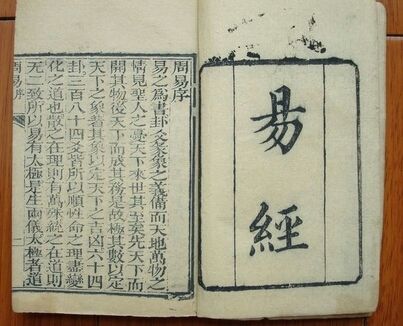 易
經
周易序
易之爲書卦爻彖象之義備而天地萬物之
情見聖人之憂天下來世其至矣先天下而
開其物後天下而成其務是故極其數以定
天下之象著其象以定天下之吉凶六十四
卦三百八十四爻皆所以順性命之理盡變
化之道也散之在理則有萬殊統之在道則
无二致所以易有太極是生兩儀太極者道
周易序